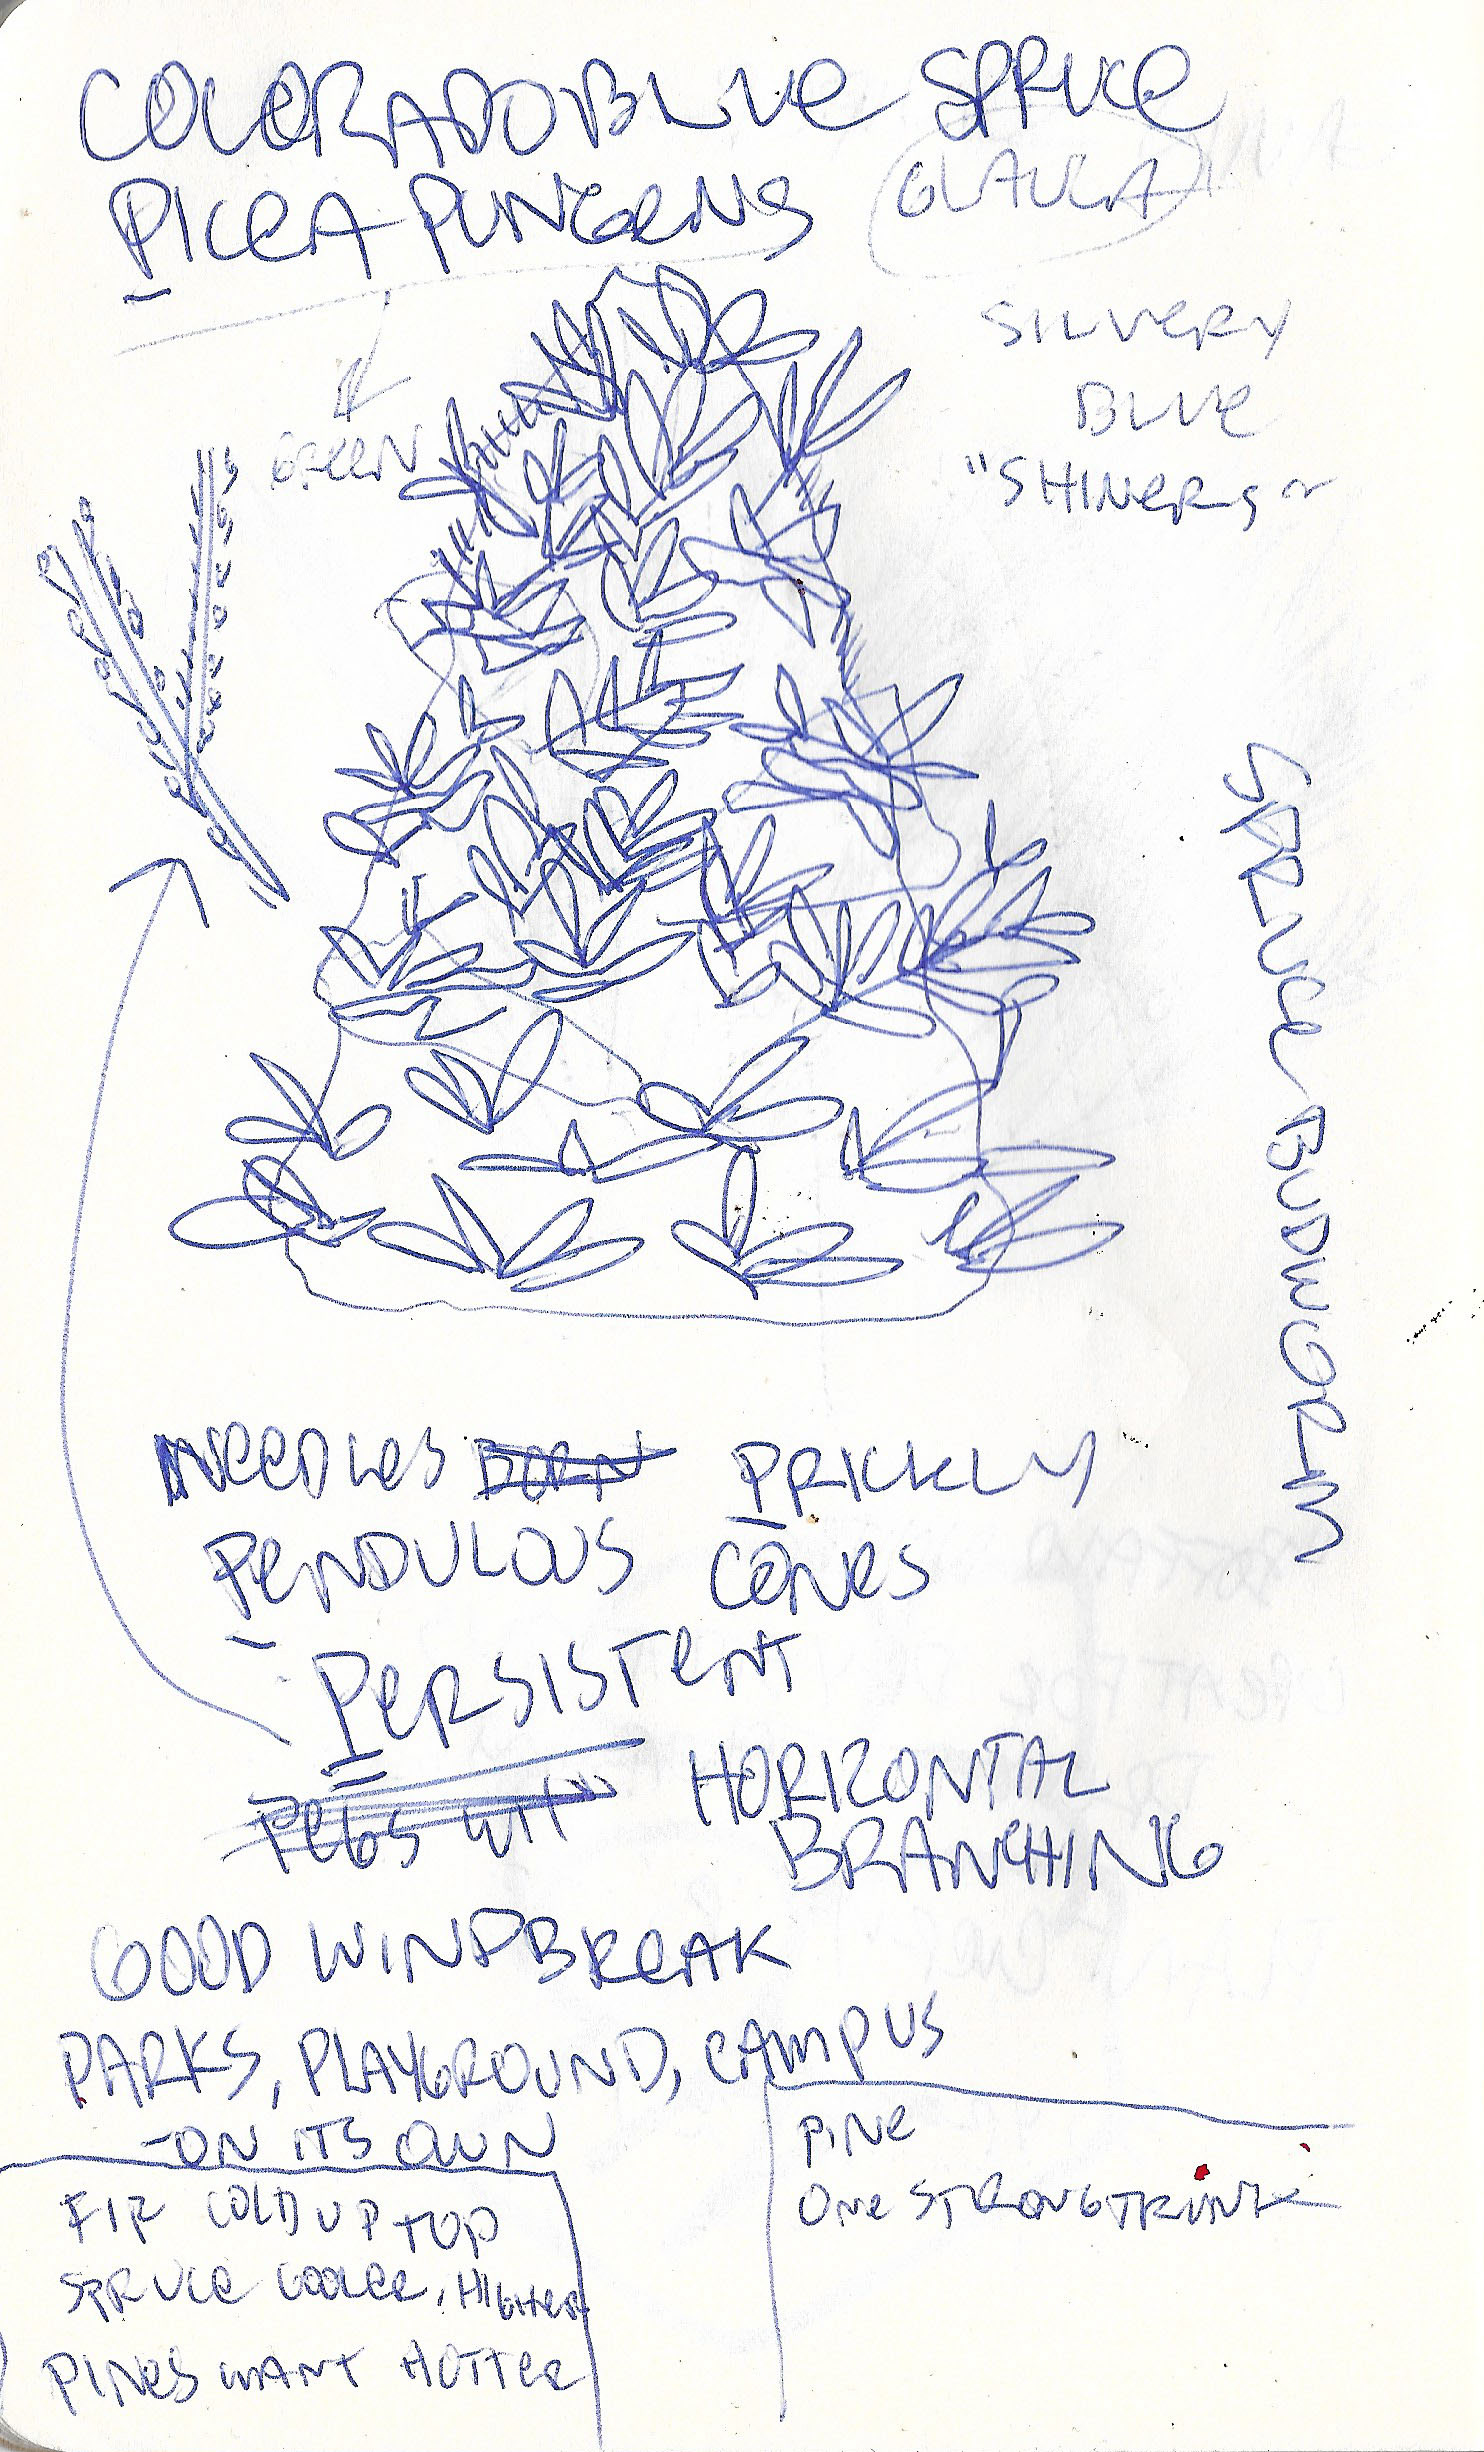 COLORADO BLUE SPRUCE
PICEA PUNGENS
GLAUCA
SILVERY
BLUE
"SHINERS"
GREEN
SPRUCE BUDWORM
NEEDLES BORN PRICKLY
PENDULOUS CONES
PERSISTENT
PEGS WIT
HORIZONTAL
BRANCHING
GOOD WINDBREAK
PARKS, PLAYGROUND, CAMPUS
-ON ITS OWN
FIR COLD UP TOP
SPRUCE COOLER, HIGHER
PINES WANT HOTTER
PINE
ONE STRONG TRUNK